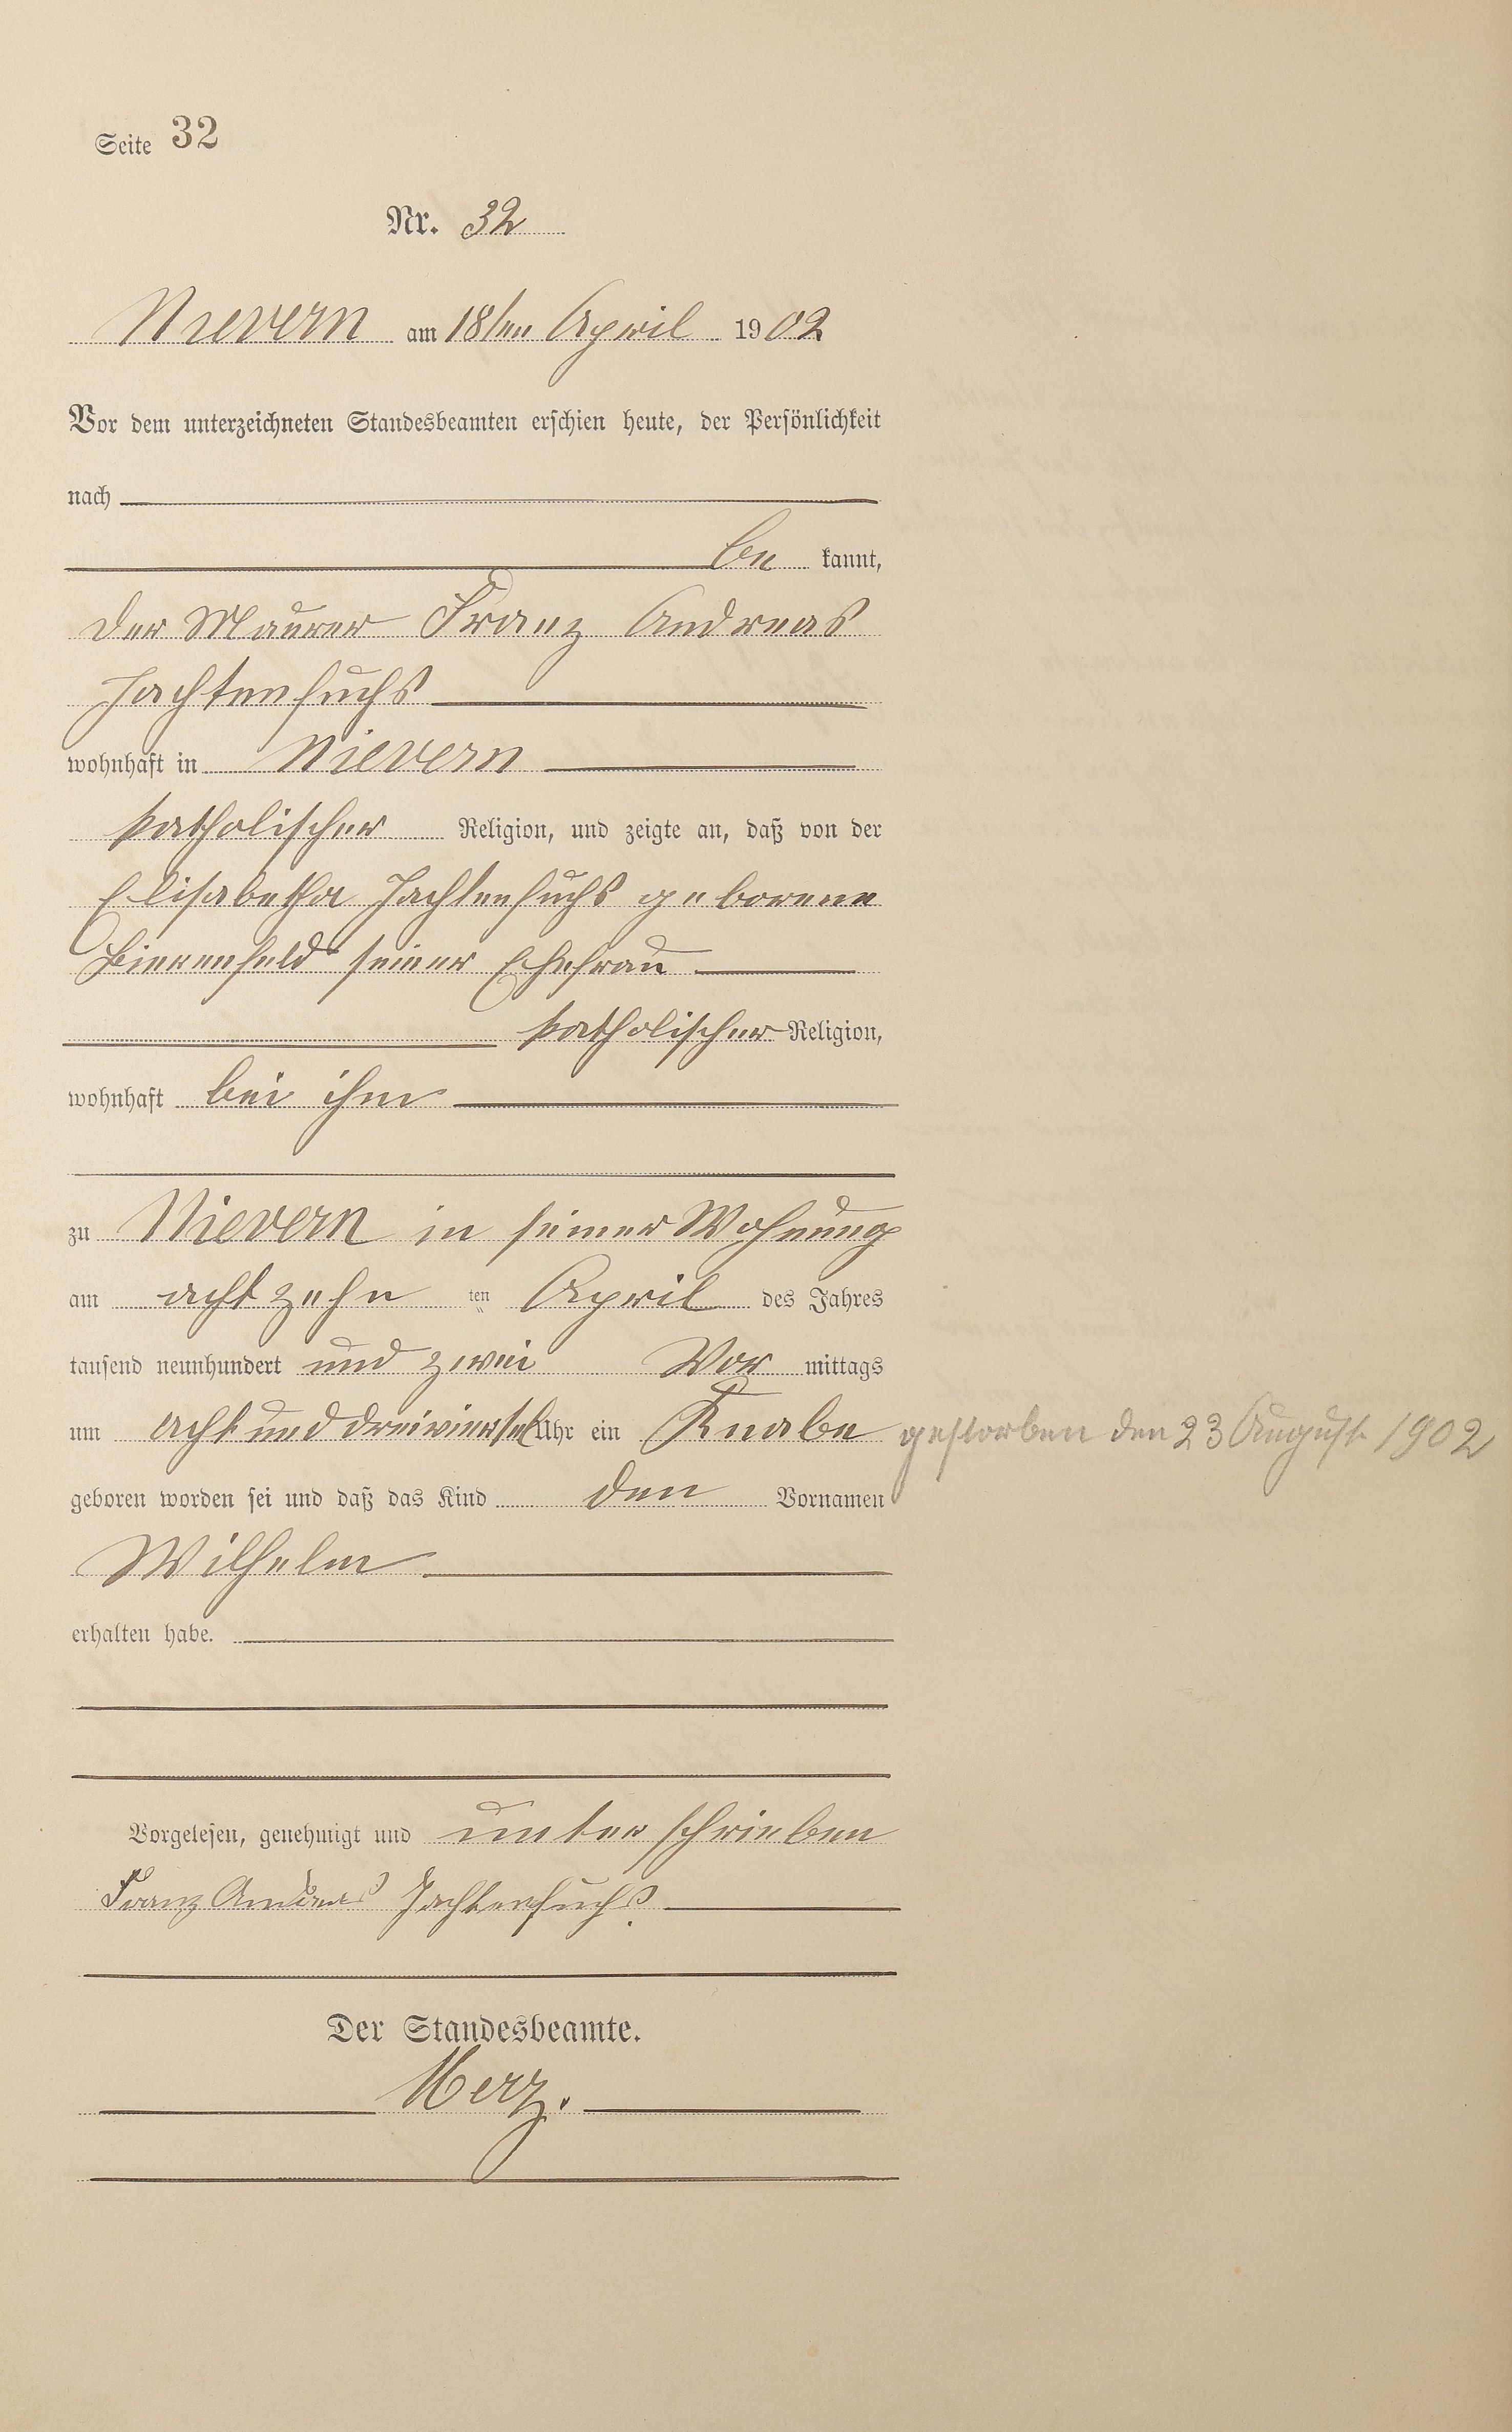 Seite 32
Nr. 32
Nievern am 18ten April 1902
Vor dem unterzeichneten Standesbeamten erschien heute, der Persönlichkeit
nach
be kannt,
der Maurer Franz Andreas
Jachtenfuchs
wohnhaft in Nievern
katholischer Religion, und zeigte an, daß von der
Elisabetha Jachtenfuchs geborene
Bierenfeld seiner Ehefrau
katholischer Religion,
wohnhaft bei ihm
zu Nievern in seiner Wohnung
am acht zehn ten April des Jahres
tausend neunhundert und zwei Vor mittags
um acht und dreiviertel Uhr ein Knabe gestorben den 23 August 1902
geboren worden sei und daß das Kind den Vornamen
Wilhelm
erhalten habe.
Vorgelesen, genehmigt und unterschrieben
Franz Andreas Jachtenfuchs.
Der Standesbeamte.
Merz.